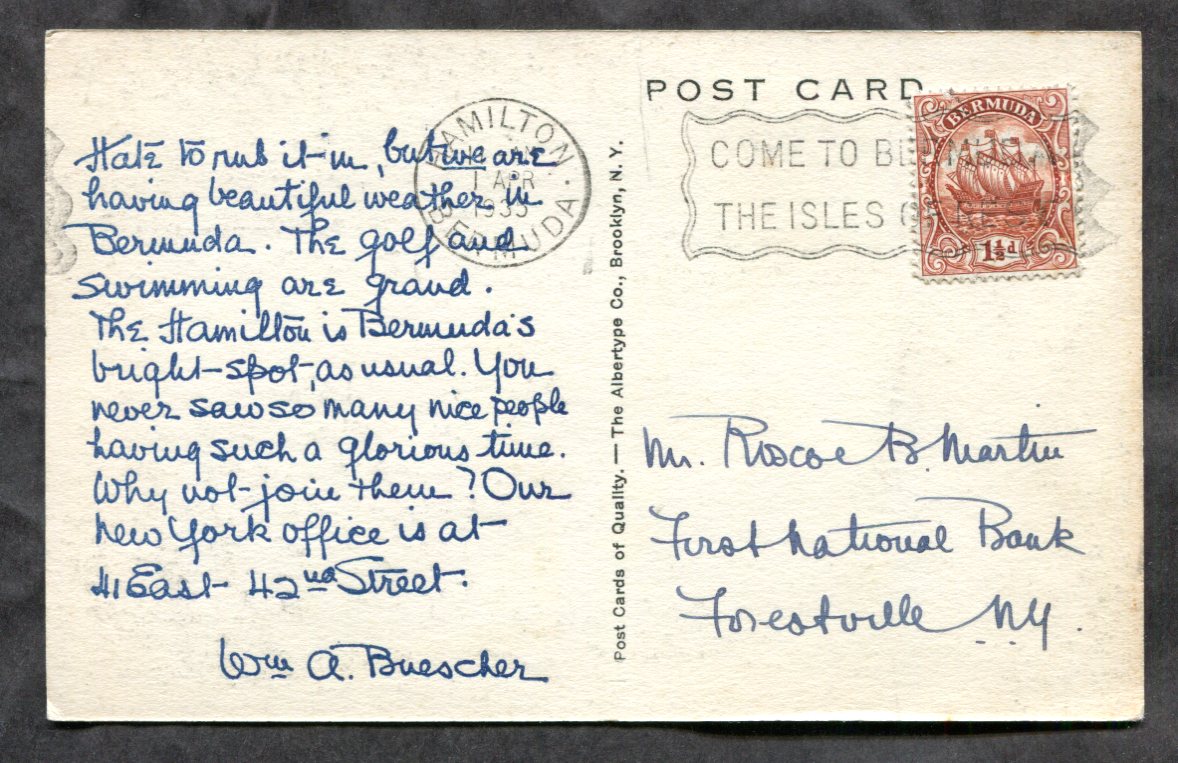 Hate to rub it in, but we are
having beautiful weather in
Bermuda. The golf and
swimming are grand.
The Hamilton is Bermuda's
bright-spot, as usual. You
never saw so many nice people
having such a glorious time.
Why not join them? Our
New York office is at
41 East 42nd Street.
Wm A. Buescher
HAMILTON
1 APR
BERMUDA
Post Cards of Quality. — The Albertype Co., Brooklyn, N. Y.
POST CARD
COME TO BERMUDA
THE ISLES OF
BERMUDA
1½d
Mr. Roscoe B. Martin
First National Bank
Forestville N.Y.